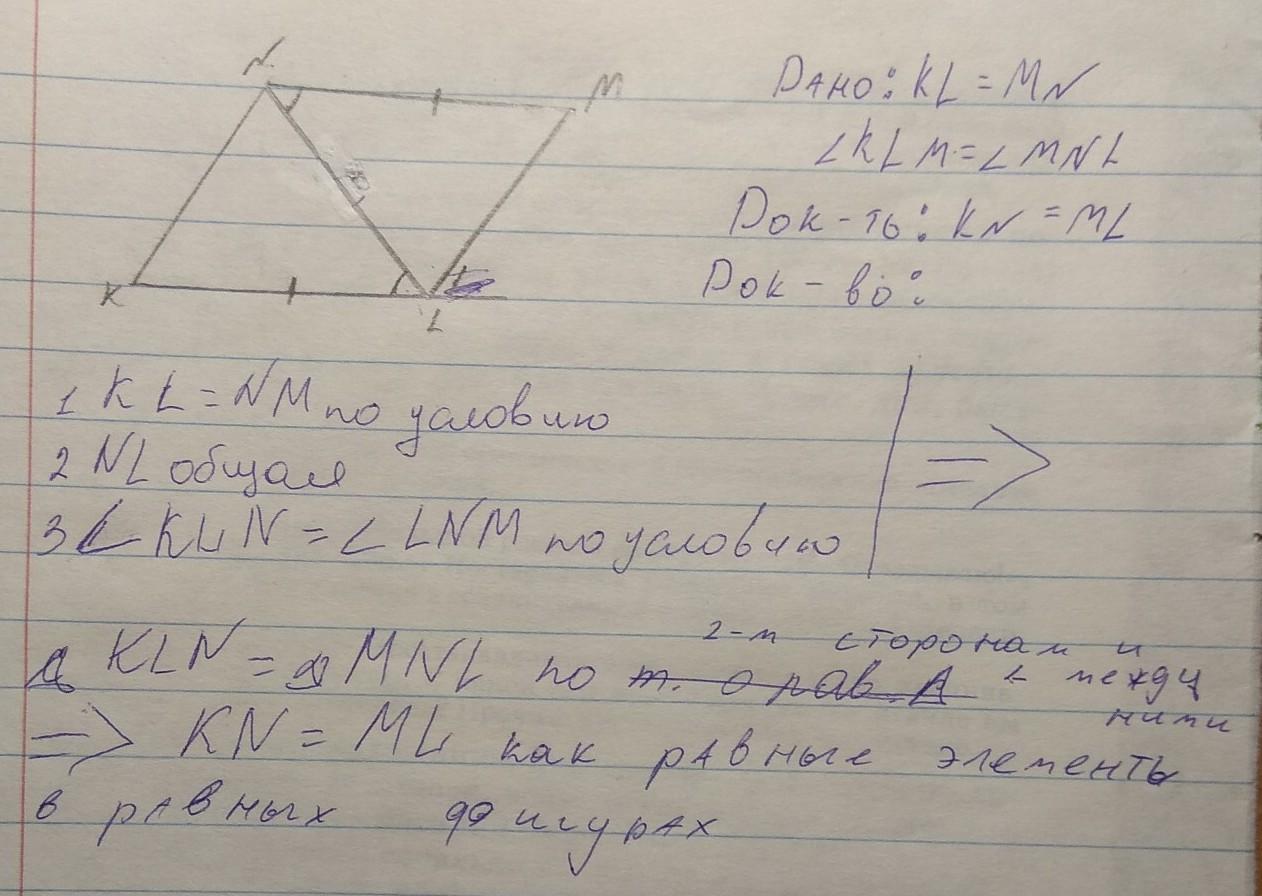 N
M
K
L
Дано: KL = MN
∠KLM = ∠MNL
Док-ть: KN = ML
Док-во:
1 KL = NM по условию
2 NL общая
3 ∠KLN = ∠LNM по условию
=>
2-м сторонам и
Δ KLN = Δ MNL по т. о рав. Δ ∠ между
ними
=> KN = ML как равные элементы
в равных фигурах